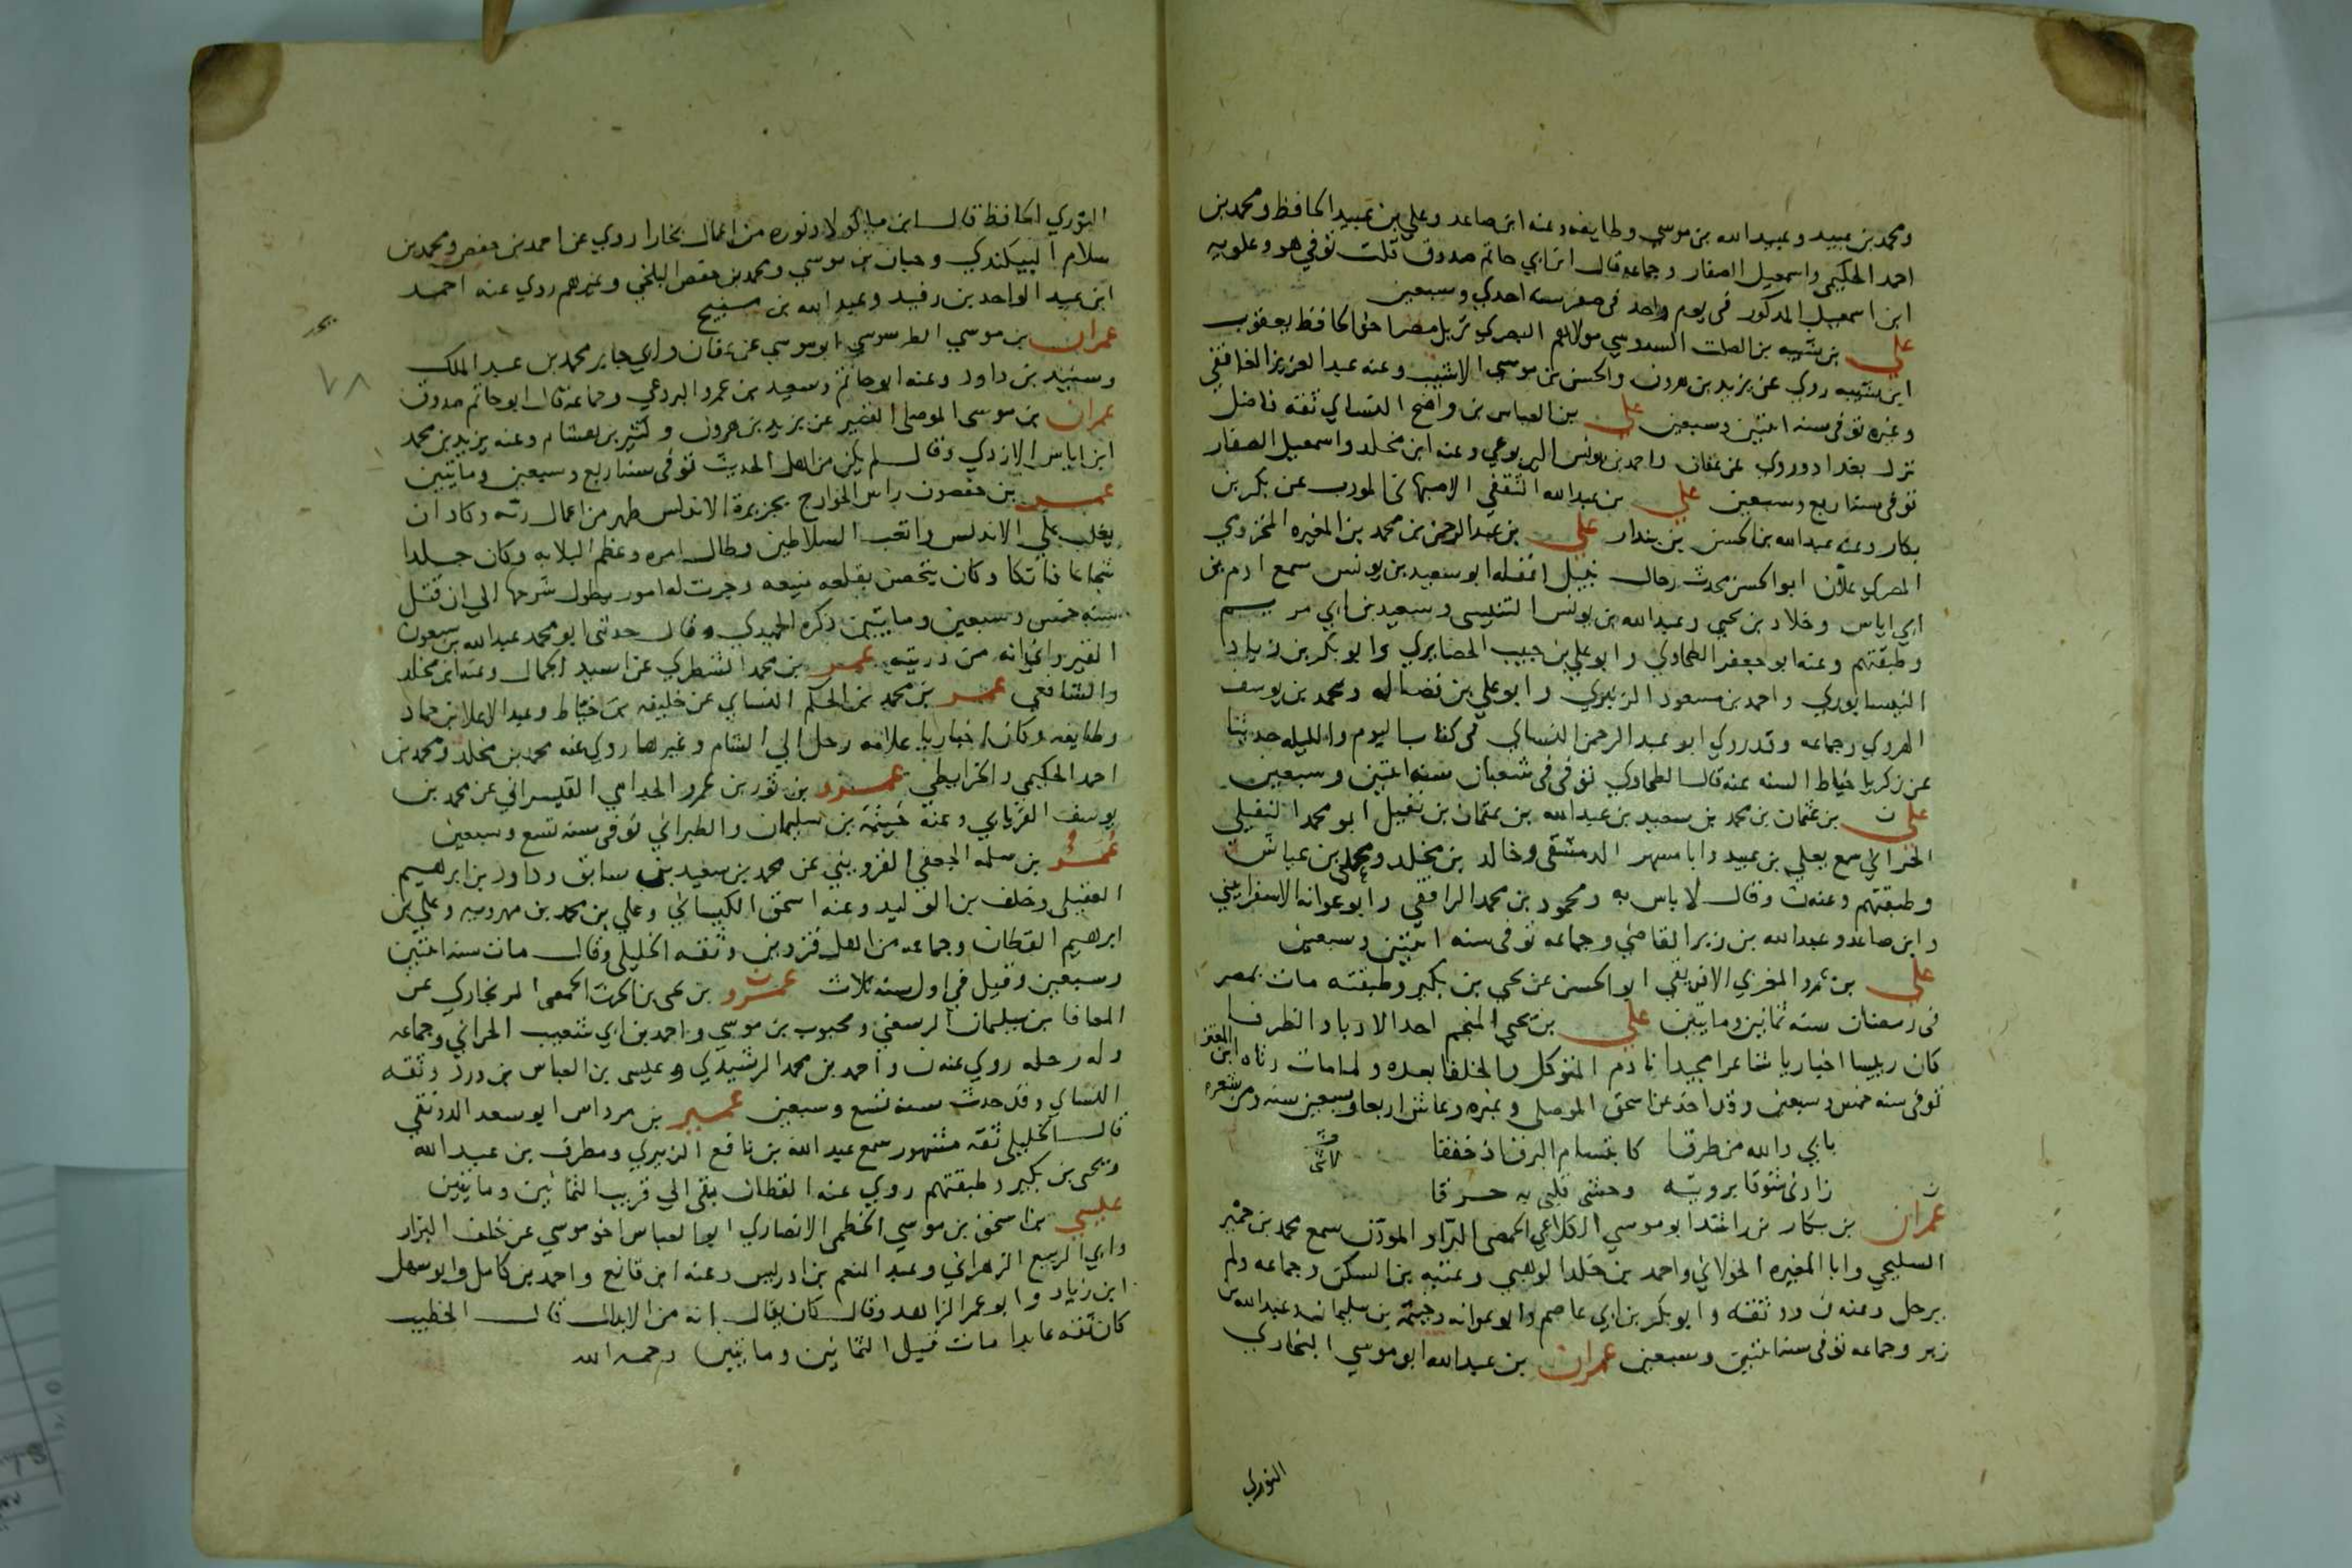 ومحمد بن عبيد وعبيد الله بن موسي وطايفه وعنه ابن صاعد وعلي بن عبيد الحافظ ومحمد بن
احمد الحكيمي واسمعيل الصفار وجماعه قال ابن ابي حاتم صدوق قلت توفي هو وعلويه
ابن اسمعيل المذكور في يوم واحد في صفر سنه احدي وسبعين
علي بن شيبه بن الصلت السدوسي مولاهم البصري نزيل مصر اخو الحافظ يعقوب
ابن شيبه روي عن يزيد بن هرون والحسن بن موسي الاشيب وعنه عبد العزيز الغافقي
وغيره توفي سنه اثنين وسبعين علي بن العباس بن واضح النساي ثقه فاضل
نزل بغداد وروي عن عفان واحمد بن يونس اليربوعي وعنه ابن مخلد واسمعيل الصفار
توفي سنه اربع وسبعين علي بن عبد الله الثقفي الاصبهاني المودب عن بكر بن
بكار وعنه عبد الله بن الحسن بن بندار علي بن عبد الرحمن بن محمد بن المغيره المخزومي
المصري علان ابو الحسن محدث رحال نبيل اغفله ابو سعيد بن يونس سمع ادم بن
ابي اياس وخلاد بن يحيي وعبد الله بن يونس التنيسي وسعيد بن ابي مريم
وطبقتهم وعنه ابو جعفر الطحاوي وابو علي بن حبيب الحضايري وابو بكر بن زياد
النيسابوري واحمد بن مسعود الزنبري وابو علي بن فضاله ومحمد بن يوسف
الهروي وجماعه وقد روي ابو عبد الرحمن النساي في كتاب اليوم والليله حديثا
عن زكريا خياط السنه عنه قال الطحاوي توفي في شعبان سنه اثنين وسبعين
علي ن بن عثمان بن محمد بن سعيد بن عبد الله بن عثمان بن نفيل ابو محمد النفيلي
الحراني سمع يعلي بن عبيد وابا مسهر الدمشقي وخالد بن مخلد ومحمد بن عياش
وطبقتهم وعنه ن وقال لا باس به ومحمود بن محمد الرافقي وابو عوانه الاسفرايني
وابن صاعد وعبد الله بن زبر القاضي وجماعه توفي سنه اثنين وسبعين
علي بن عمرو المغربي الافريقي ابو الحسن عن يحيي بن بكير وطبقته مات بمصر
في رمضان سنه ثمانين ومايتين علي بن يحيي المنجم احد الادباء الظرفا
كان رييسا اخباريا شاعرا مجيدا نادم المتوكل والخلفا بعده ولما مات رثاه ابن المعتز
توفي سنه خمس وسبعين وقد اخذ عن اسحق الموصلي وغيره وعاش اربعا وسبعين سنه ومن شعره
بابي والله من طرقا كابتسام البرق اذ خفقا
زادني شوقا برويته وحشي قلبي به حرقا
عمران ن بن بكار بن راشد ابو موسي الكلاعي الحمصي البراد الموذن سمع محمد بن حمير
السليحي وابا المغيره الخولاني واحمد بن خالد الوهبي وعتبه بن السكن وجماعه ولم
يرحل وعنه ن ووثقه وابو بكر بن ابي عاصم وابو عوانه وخيثمه بن سليمان وعبد الله بن
زبر وجماعه توفي سنه اثنين وسبعين عمران بن عبد الله ابو موسي البخاري
النوري
النوري الحافظ قال ابن ماكولا ونوره من اعمال بخارا روي عن احمد بن حفص ومحمد بن
سلام البيكندي وحبان بن موسي ومحمد بن حفص البلخي وغيرهم روي عنه احمد
ابن عبد الواحد بن رفيد وعبد الله بن منيح
عمران بن موسي الطرسوسي ابو موسي عن عفان وابي جابر محمد بن عبد الملك
وسنيد بن داود وعنه ابو حاتم وسعيد بن عمرو البردعي وجماعه قال ابو حاتم صدوق
عمران بن موسي الموصلي الضرير عن يزيد بن هرون وكثير بن هشام وعنه يزيد بن محمد
ابن اياس الازدي وقال لم يكن من اهل الحديث توفي سنه اربع وسبعين ومايتين
عمر بن حفصون راس الخوارج بجزيرة الاندلس ظهر من اعمال ريه وكاد ان
يغلب علي الاندلس واتعب السلاطين وطال امره وعظم البلا به وكان جلدا
شجاعا فاتكا وكان يتحصن بقلعه منيعه وجرت له امور يطول شرحها الي ان قتل
سنه خمس وسبعين ومايتين ذكره الحميدي وقال حدثني ابو محمد عبد الله بن سبعون
القيرواني انه من ذريته عمر بن محمد الشطري عن اسيد الجمال وعنه ابن مخلد
والشافعي عمر بن محمد بن الحكم النساي عن خليفه بن خياط وعبد الاعلا بن حماد
وطايفه وكان اخباريا علامه رحل الي الشام وغيرها روي عنه محمد بن مخلد ومحمد بن
احمد الحكيمي والخرايطي عمرو بن ثور بن عمرو الجذامي القيسراني عن محمد بن
يوسف الفريابي وعنه خيثمه بن سليمان والطبراني توفي سنه تسع وسبعين
عمرو بن سلمه الجعفي القزويني عن محمد بن سعيد بن سابق وداود بن ابرهيم
العقيلي وخلف بن الوليد وعنه اسحق الكيساني وعلي بن محمد بن مهرويه وعلي بن
ابرهيم القطان وجماعه من اهل قزوين وثقه الخليلي وقال مات سنه اثنين
وسبعين وقيل في اول سنه ثلاث عمرو ن بن يحيي بن الحرث الحمصي الزنجاري عن
المعافا بن سليمان الرسعني ومحبوب بن موسي واحمد بن ابي شعيب الحراني وجماعه
وله رحله روي عنه ن واحمد بن محمد الرشيدي وعيسي بن العباس بن ورد وثقه
النساي وقد حدث سنه تسع وسبعين عمير بن مرداس ابو سعد الدونقي
قال الخليلي ثقه مشهور سمع عبد الله بن نافع الزبيري ومطرف بن عبد الله
ويحيي بن بكير وطبقتهم روي عنه القطان بقي الي قريب الثمانين ومايتين
عيسي بن اسحق بن موسي الخطمي الانصاري ابو العباس اخو موسي عن خلف البزار
وابي الربيع الزهراني وعبد المنعم بن ادريس وعنه ابن قانع واحمد بن كامل وابو سهل
ابن زياد وابو عمر الزاهد وقال كان يقال انه من الابدال قال الخطيب
كان ثقه عابدا مات قبيل الثمانين ومايتين رحمه الله
٧٨